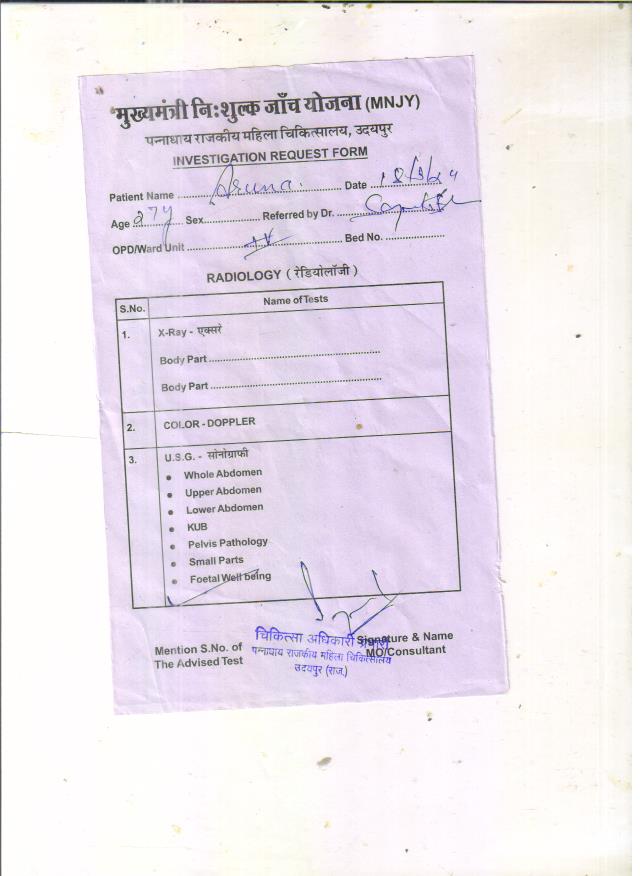 मुख्यमंत्री नि:शुल्क जाँच योजना (MNJY)
पन्नाधाय राजकीय महिला चिकित्सालय, उदयपुर
INVESTIGATION REQUEST FORM
Patient Name Aruna. Date
Age 27y Sex Referred by Dr.
OPD/Ward Unit Bed No.
RADIOLOGY ( रेडियोलॉजी )
S.No. Name of Tests
1. X-Ray - एक्सरे
Body Part
Body Part
2. COLOR - DOPPLER
3. U.S.G. - सोनोग्राफी
• Whole Abdomen
• Upper Abdomen
• Lower Abdomen
• KUB
• Pelvis Pathology
• Small Parts
• Foetal Well being
चिकित्सा अधिकारी प्रभारी
पन्नाधाय राजकीय महिला चिकित्सालय
उदयपुर (राज.)
Mention S.No. of Signature & Name
The Advised Test MO/Consultant